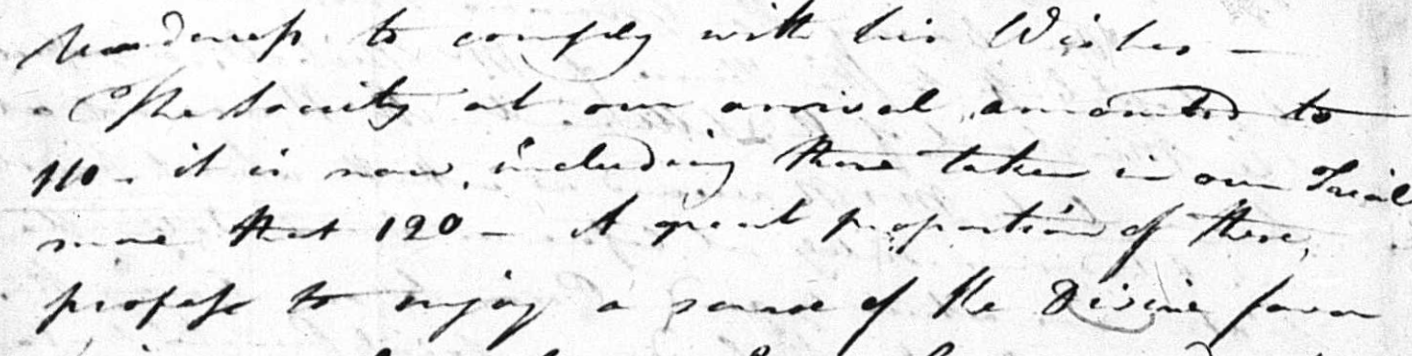 to comply with his Wishes —
The Society at our arrival amounted to
110 - it is now, including those taken in on Trial
more that 120 — A great proportion of these,
profess to enjoy a sense of the Divine favor